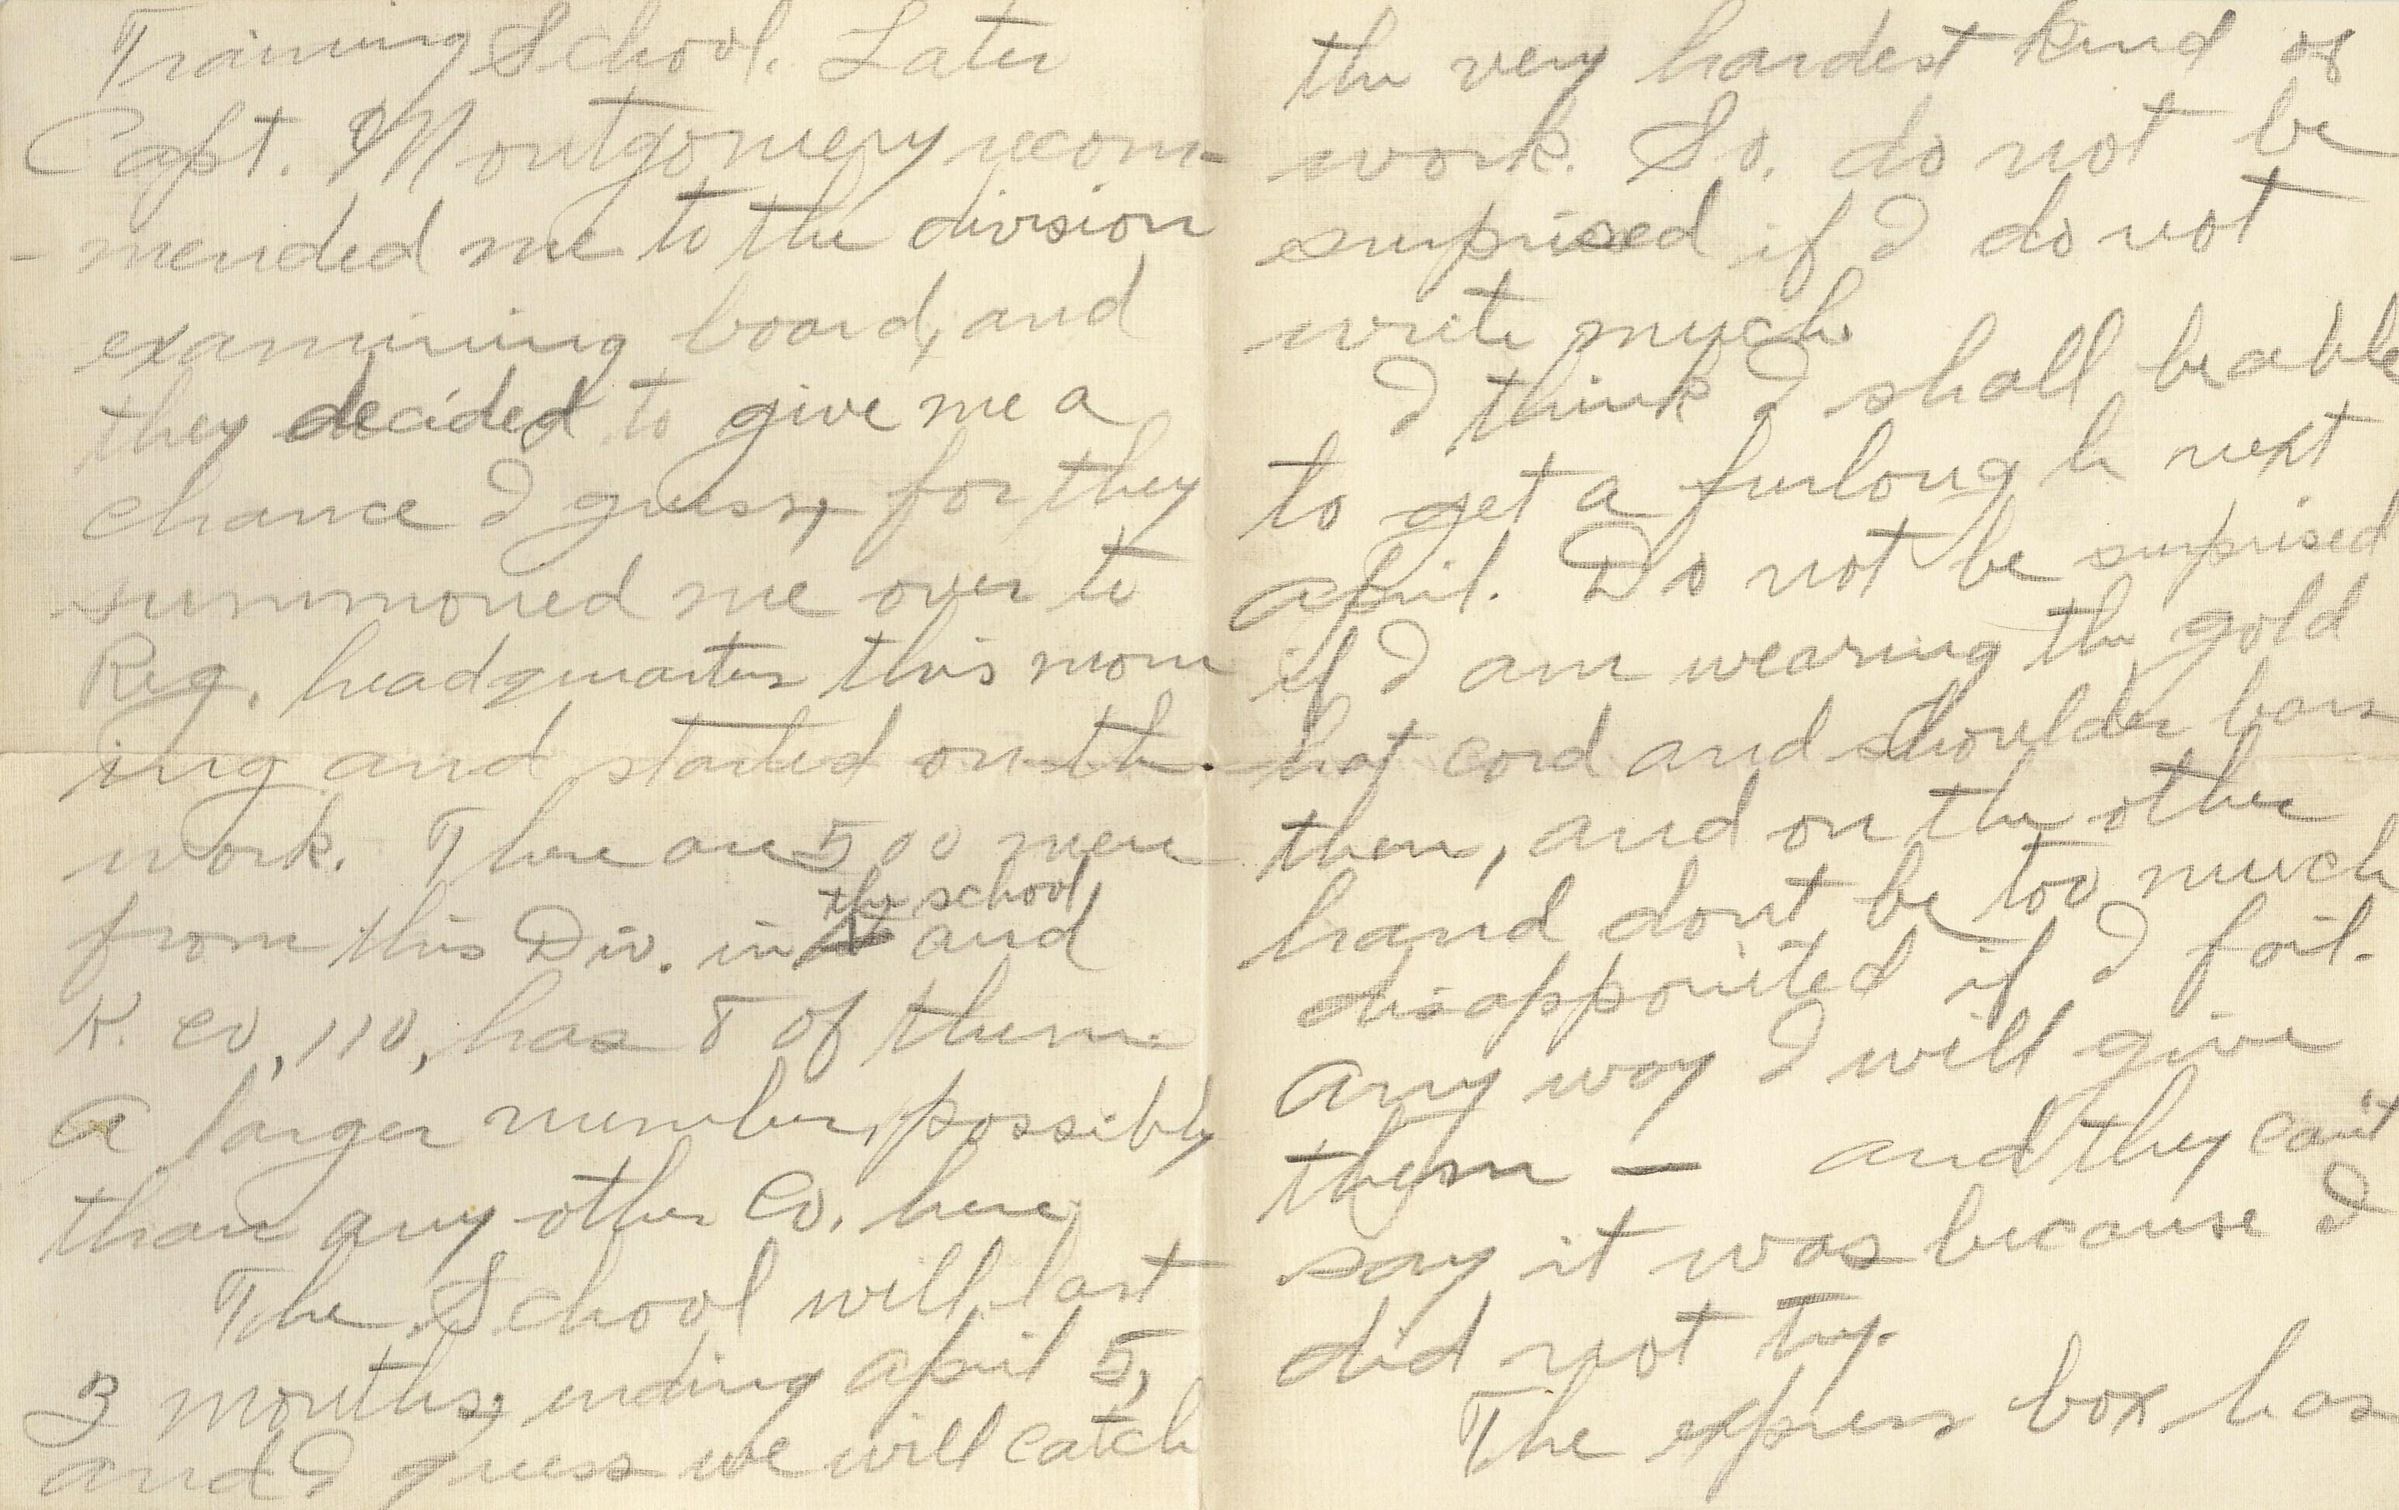 Training School. Later
Capt. Montgomery recom-
-mended me to the division
examining board, and
they decided to give me a
chance I guess, for they
summoned me over to
Reg. headquarters this morn
ing and started on the
work. There are 500 men
the school
from this Div. in and
K. Co, 110, has 8 of them.
a larger number, possibly
than any other Co. here.
The School will last
3 months, ending april 5,
and I guess we will catch
the very hardest kind of
work. So. do not be
surprised if I do not
write much.
I think I shall be able
to get a furlough next
april. Do not be surprised
if I am wearing the gold
hat cord and shoulder bars
then, and on the other
hand dont be too much
disappointed if I fail.
Any way I will give
them — and they can't
say it was because I
did not try.
The express box has